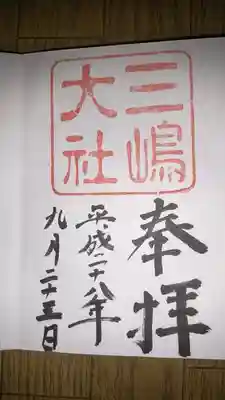 奉拝
三嶋
大社
平成二十八年
九月二十五日